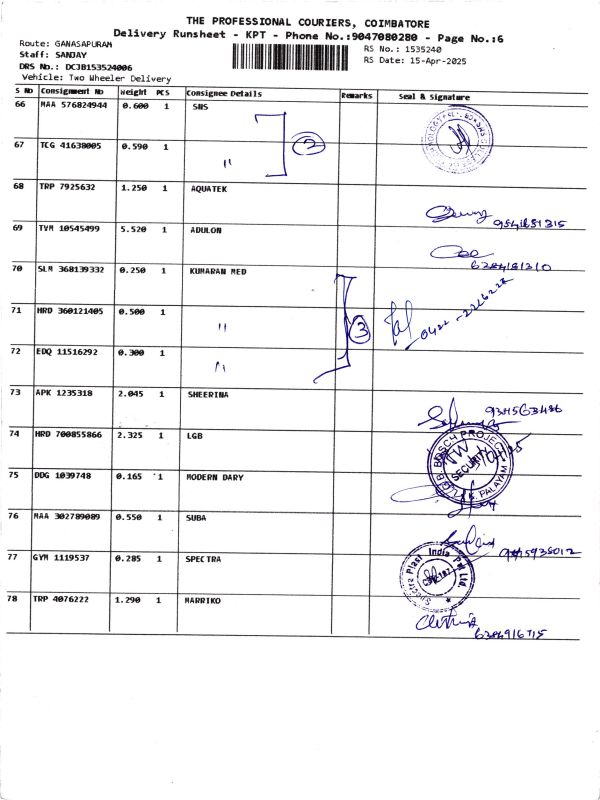 THE PROFESSIONAL COURIERS, COIMBATORE
Delivery Runsheet - KPT - Phone No.:9047080280 - Page No.:6
Route: GANASAPURAM
RS No.: 1535240
Staff: SANJAY
RS Date: 15-Apr-2025
DRS No.: DCJB153524006
Vehicle: Two Wheeler Delivery
S No Consignment No Weight PCS Consignee Details Remarks Seal & Signature
66 MAA 576824944 0.600 1 SNS
2
67 TCG 41638005 0.590 1 "
68 TRP 7925632 1.250 1 AQUATEK
69 TVM 10545499 5.520 1 ADULON
6284181310
70 SLM 368139332 0.250 1 KUMARAN MED
71 HRD 360121405 0.500 1 "
3
72 EDQ 11516292 0.300 1 "
73 APK 1235318 2.045 1 SHEERINA
74 HRD 700855866 2.325 1 LGB
SECURITY
75 DDG 1039748 0.165 1 MODERN DARY
76 MAA 302789089 0.550 1 SUBA
77 GYM 1119537 0.285 1 SPECTRA
Spectra Plast India Pvt Ltd.
78 TRP 4076222 1.290 1 MARRIKO